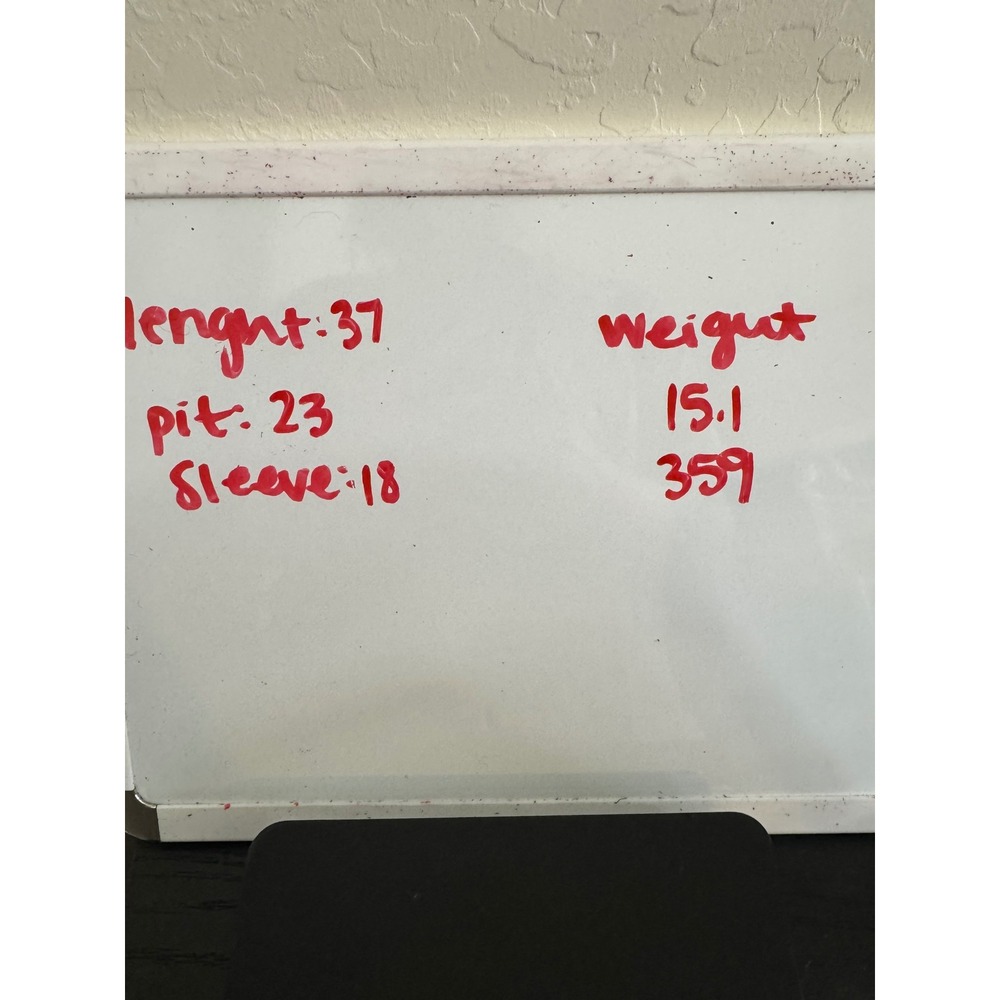 lenght:37
pit: 23
Sleeve:18
weight
15.1
359